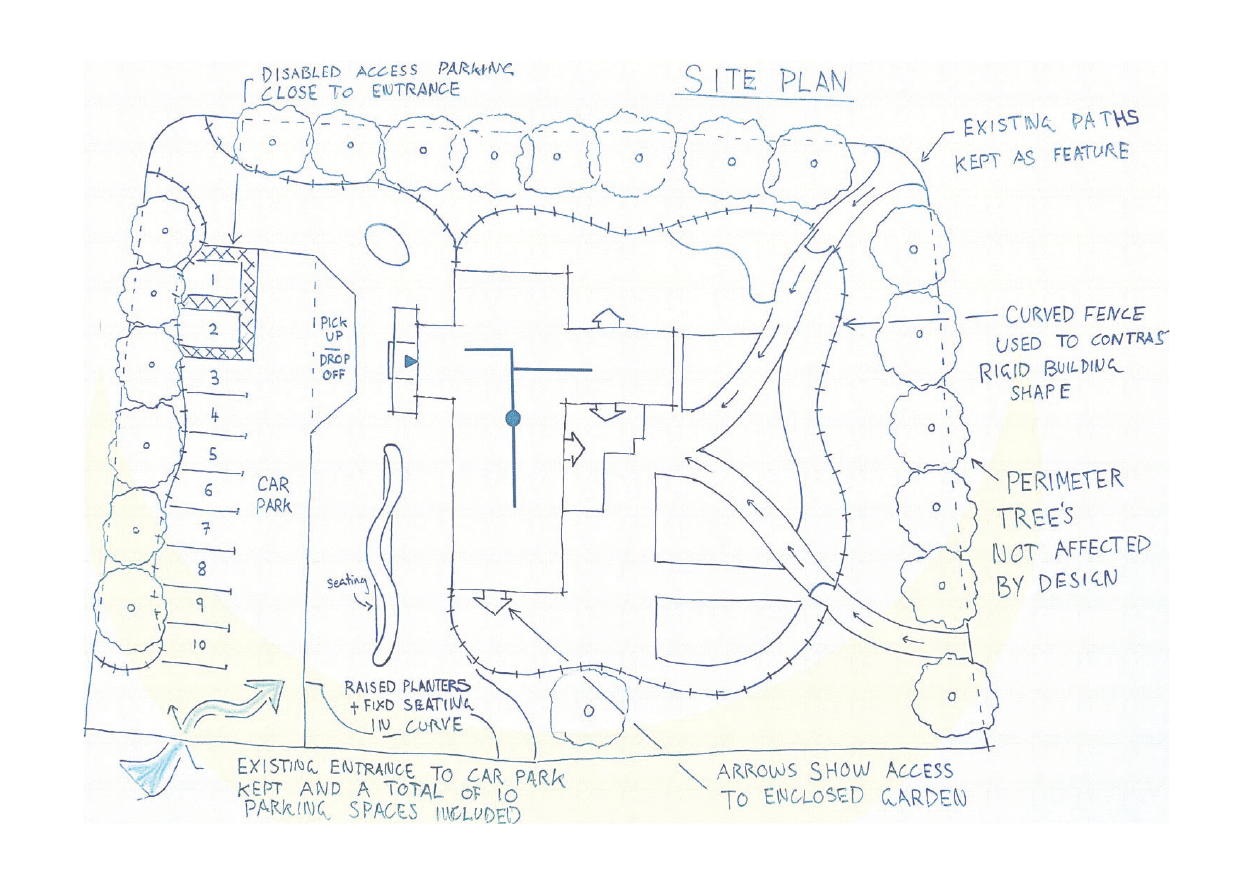 DISABLED ACCESS PARKING
CLOSE TO ENTRANCE
SITE PLAN
EXISTING PATHS
KEPT AS FEATURE
1
2
3
4
5
6
7
8
9
10
PICK
UP
DROP
OFF
CAR
PARK
CURVED FENCE
USED TO CONTRAS
RIGID BUILDING
SHAPE
PERIMETER
TREE'S
NOT AFFECTED
BY DESIGN
seating
RAISED PLANTERS
+ FIXD SEATING
IN CURVE
EXISTING ENTRANCE TO CAR PARK
KEPT AND A TOTAL OF 10
PARKING SPACES INCLUDED
ARROWS SHOW ACCESS
TO ENCLOSED GARDEN